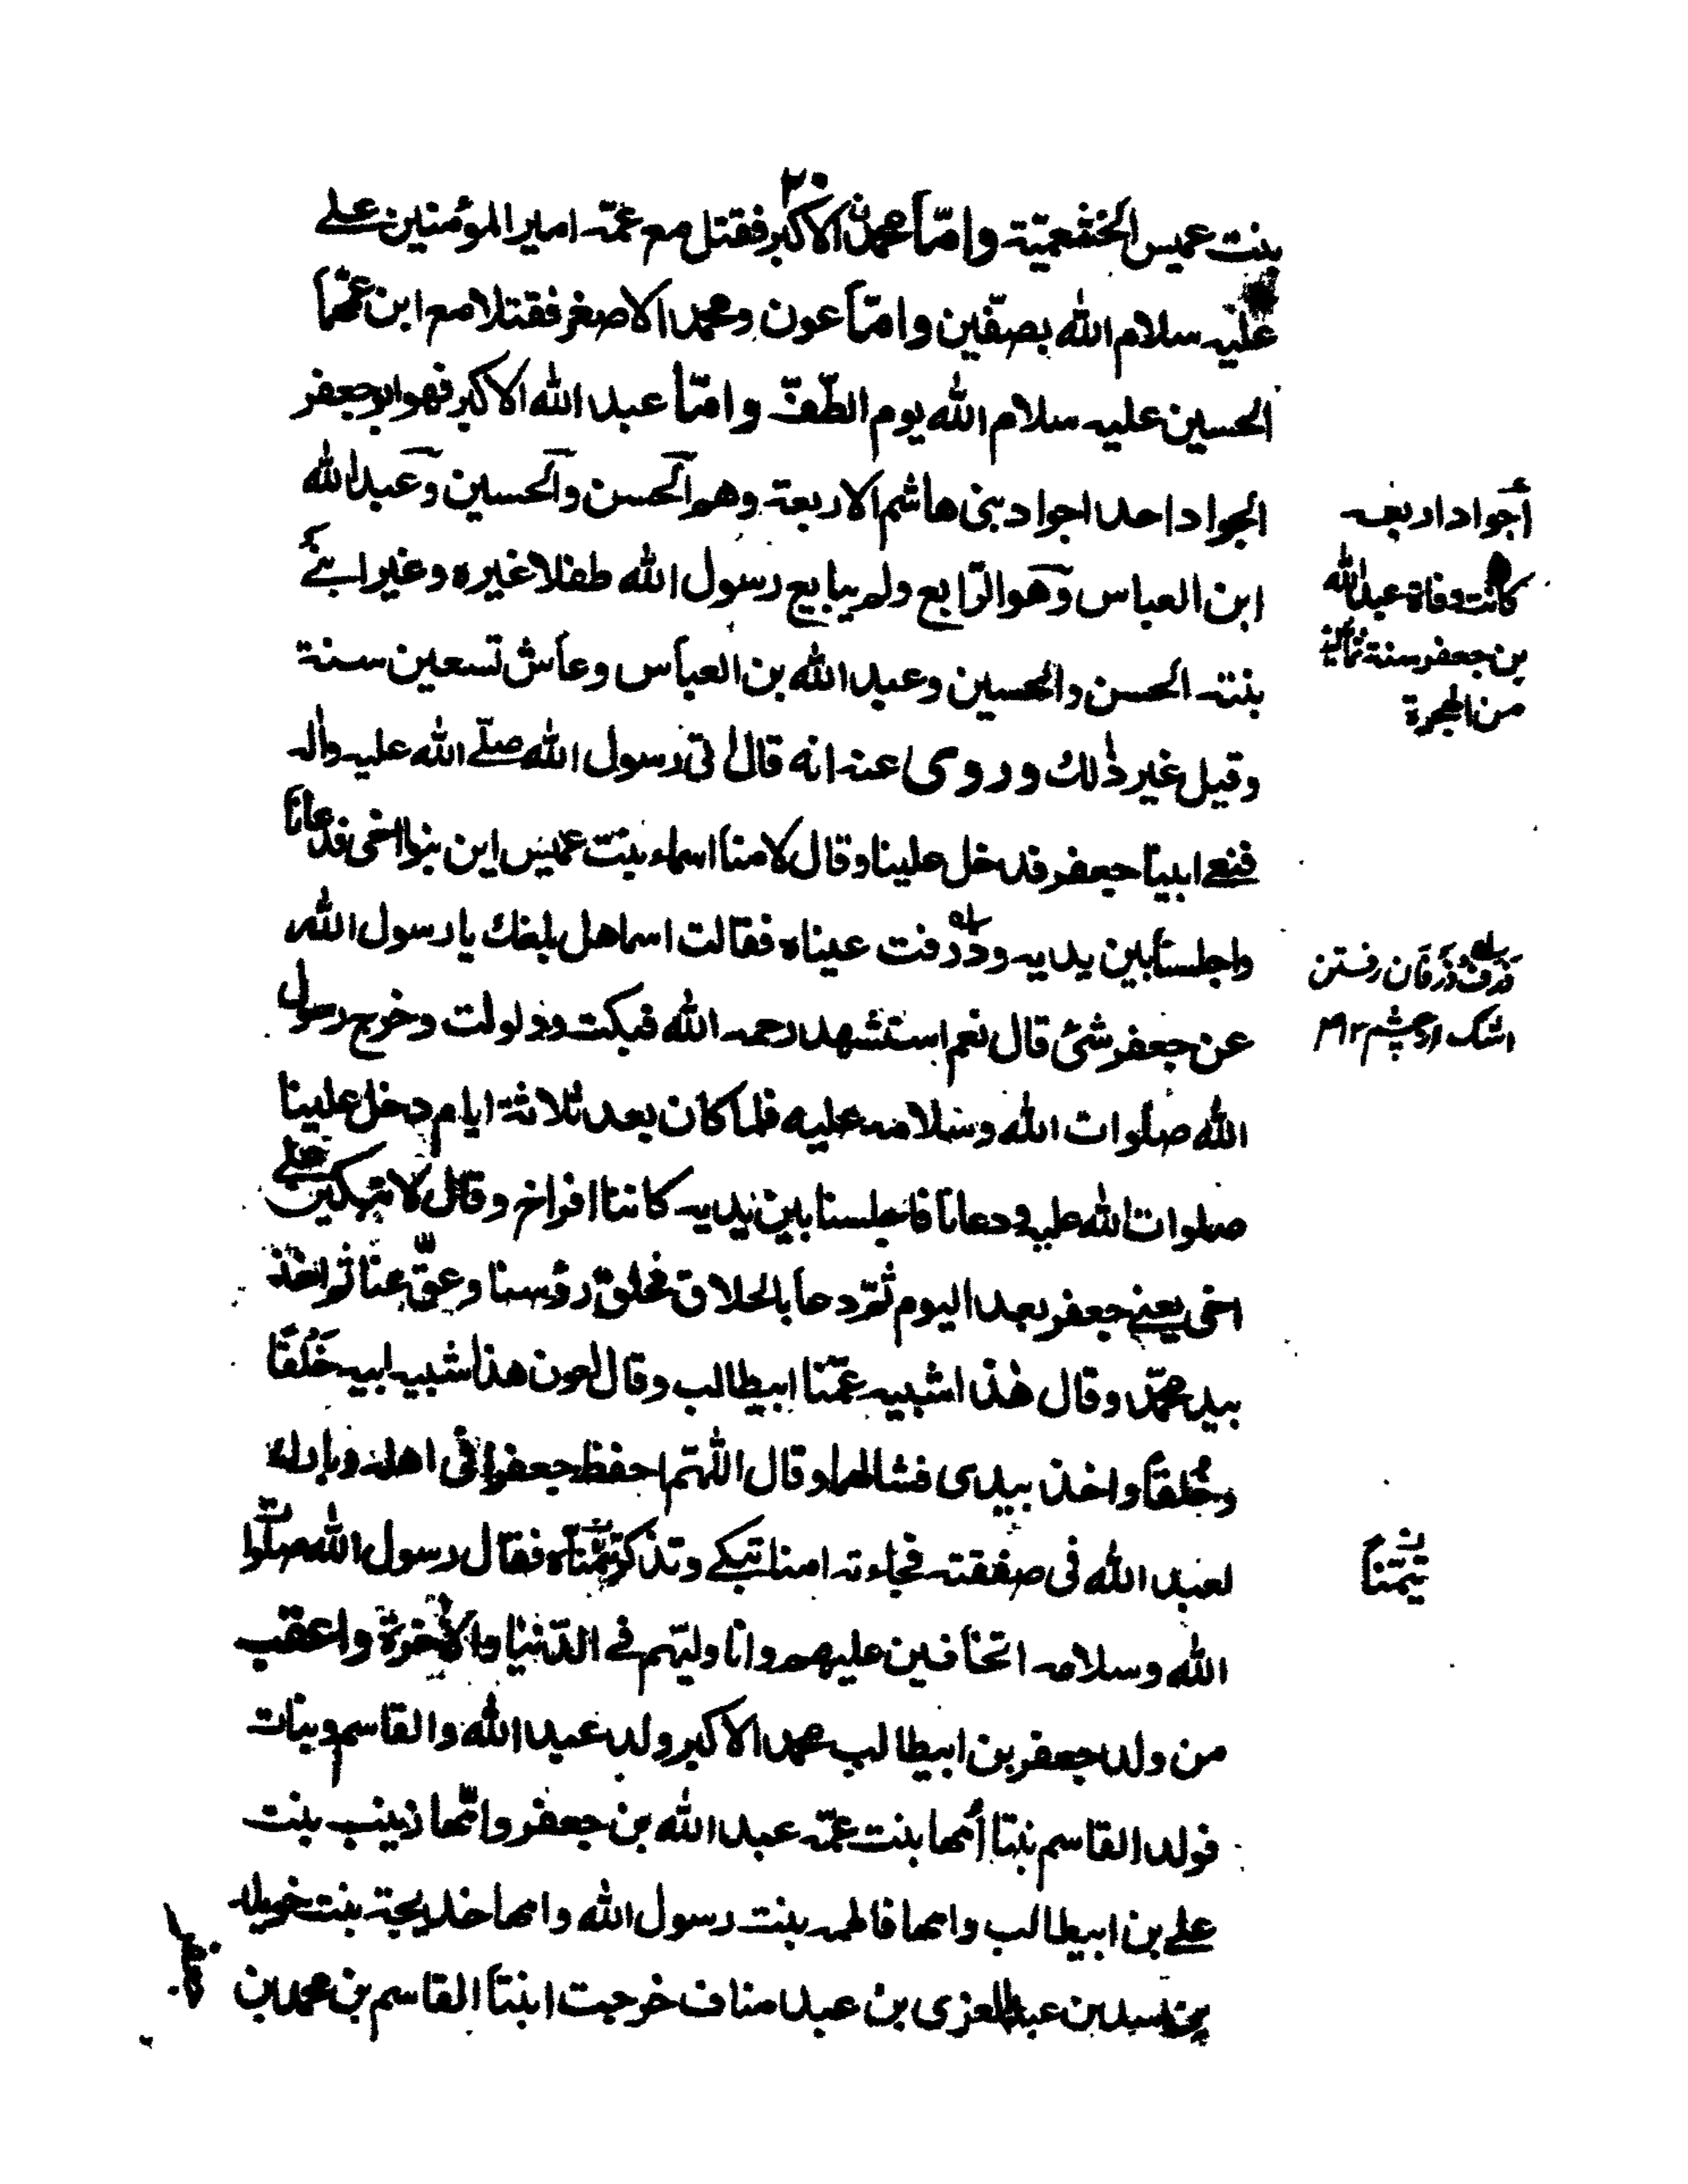 ٢٠
بنت عميس الخثعميّة وامّا محمدن الاكبر فقتل مع عمّه امير المؤمنين علے
عليه سلام الله بصفّين وامّا عون ومحمد الاصغر فقتلا مع ابن عمّهما
الحسين عليه سلام الله يوم الطّفّ وامّا عبد الله الاكبر فهو ابو جعفر
الجواد احد اجواد بنى هاشم الاربعة وهم الحسن والحسين وعبد الله
ابن العباس وهو الرّابع ولم يبايع رسول الله طفلا غيره وغير ابنے
بنته الحسن والحسين وعبد الله بن العباس وعاش تسعين سنة
وقيل غير ذٰلك وروى عنه انه قال اتى رسول الله صلّے الله عليه واله
فنعے ابينا جعفر فدخل علينا وقال لامنا اسماء بنت عميس اين بنوا اخى فدعانا
واجلسنا بين يديه وذرفت عيناه فقالت اسما هل بلغك يا رسول الله
عن جعفر شئ قال نعم استشهد رحمه الله فبكت وولولت وخرج رسول
الله صلوات الله وسلامه عليه فلما كان بعد ثلاثة ايام دخل علينا
صلوات الله عليه ودعانا فاجلسنا بين يديه كاننا افراخ وقال لا تبكين علے
اخى يعنے جعفر بعد اليوم ثمّ دعا بالحلاق فحلق رؤسنا وعقّ عنا ثم اخذ
بيد محمّد وقال هٰذا شبيه عمّنا ابيطالب وقال لعون هذا شبيه ابيه خَلقًا
وخُلقًا واخذ بيدى فشالهما وقال اللّٰهمّ احفظ جعفرا فى اهله وبارك
لعبد الله فى صفقته فجاءته امنا تبكے وتذكر يتمنا فقال رسول الله صلوات
الله وسلامه اتخافين عليهم وانا وليّهم فے الدّنيا والاٰخرة واعقب
من ولد جعفر بن ابيطالب محمد الاكبر ولد عبد الله والقاسم وبنات
فولد القاسم بنتا اُمها بنت عمّه عبد الله بن جعفر وامّها زينب بنت
علے بن ابيطالب وامها فاطمه بنت رسول الله وامها خديجة بنت خويلد
بن اسد بن عبد العزى بن عبد مناف خرجت ابنتا القاسم بن محمد بن
أجواد اربعه
كانت وفاة عبد الله
بن جعفر سنة ثمانين
من الهجرة
ذرف ذرفان رفتن
اشك از چشم ١٢
يتمنا